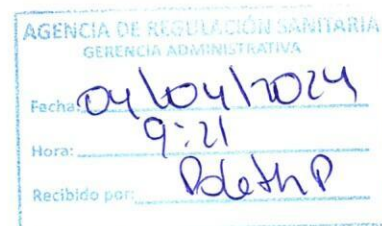 AGENCIA DE REGULACIÓN SANITARIA
GERENCIA ADMINISTRATIVA
Fecha: 04/04/2024
Hora: 9:21
Recibido por: